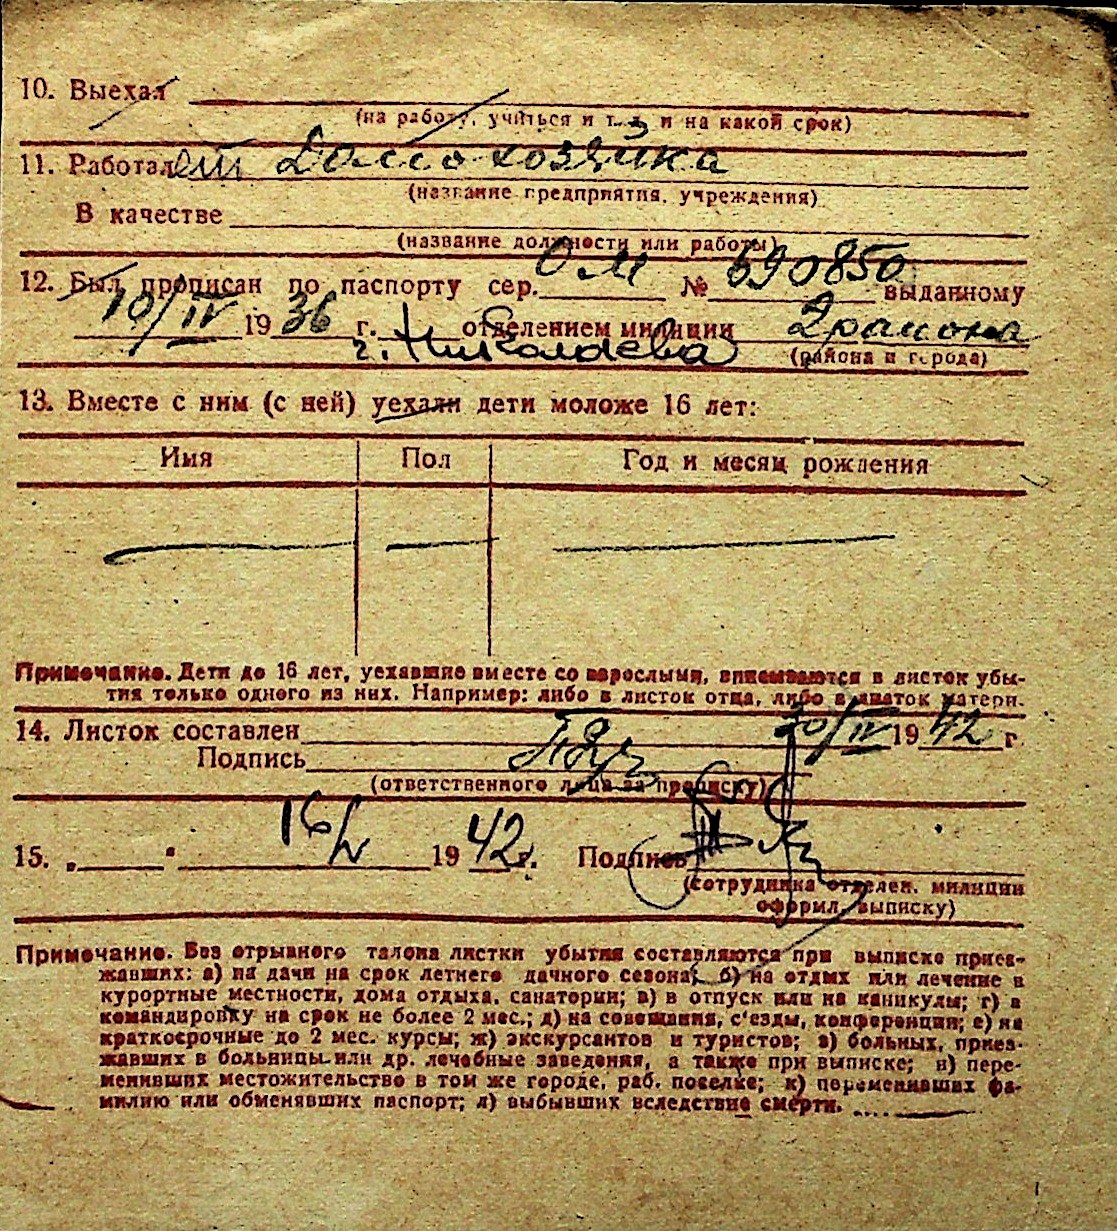 10. Выехал
(на работу, учиться и т. д. и на какой срок)
11. Работал ет Домохозяйка
(название предприятия, учреждения)
В качестве
(название должности или работы)
12. Был прописан по паспорту сер. ОМ № 690850 выданному
10/IV 1936 г. 1 отделением милиции 2 района
г. Николаева (района и города)
13. Вместе с ним (с ней) уехали дети моложе 16 лет:
Имя Пол Год и месяц рождения
Примечание. Дети до 16 лет, уехавшие вместе со взрослыми, вписываются в листок убы-
тия только одного из них. Например: либо в листок отца, либо в листок матери.
14. Листок составлен 30/IV 1942 г.
Подпись
(ответственного лица за прописку)
15. „ “ 16/V 1942 г. Подпись
(сотрудника отделен. милиции
оформл. выписку)
Примечание. Без отрывного талона листки убытия составляются при выписке приез-
жавших: а) на дачи на срок летнего дачного сезона; б) на отдых или лечение в
курортные местности, дома отдыха, санатории; в) в отпуск или на каникулы; г) в
командировку на срок не более 2 мес.; д) на совещания, с'езды, конференции; е) на
краткосрочные до 2 мес. курсы; ж) экскурсантов и туристов; з) больных, приез-
жавших в больницы или др. лечебные заведения, а также при выписке; и) пере-
менивших местожительство в том же городе, раб. поселке; к) переменивших фа-
милию или обменявших паспорт; л) выбывших вследствие смерти.